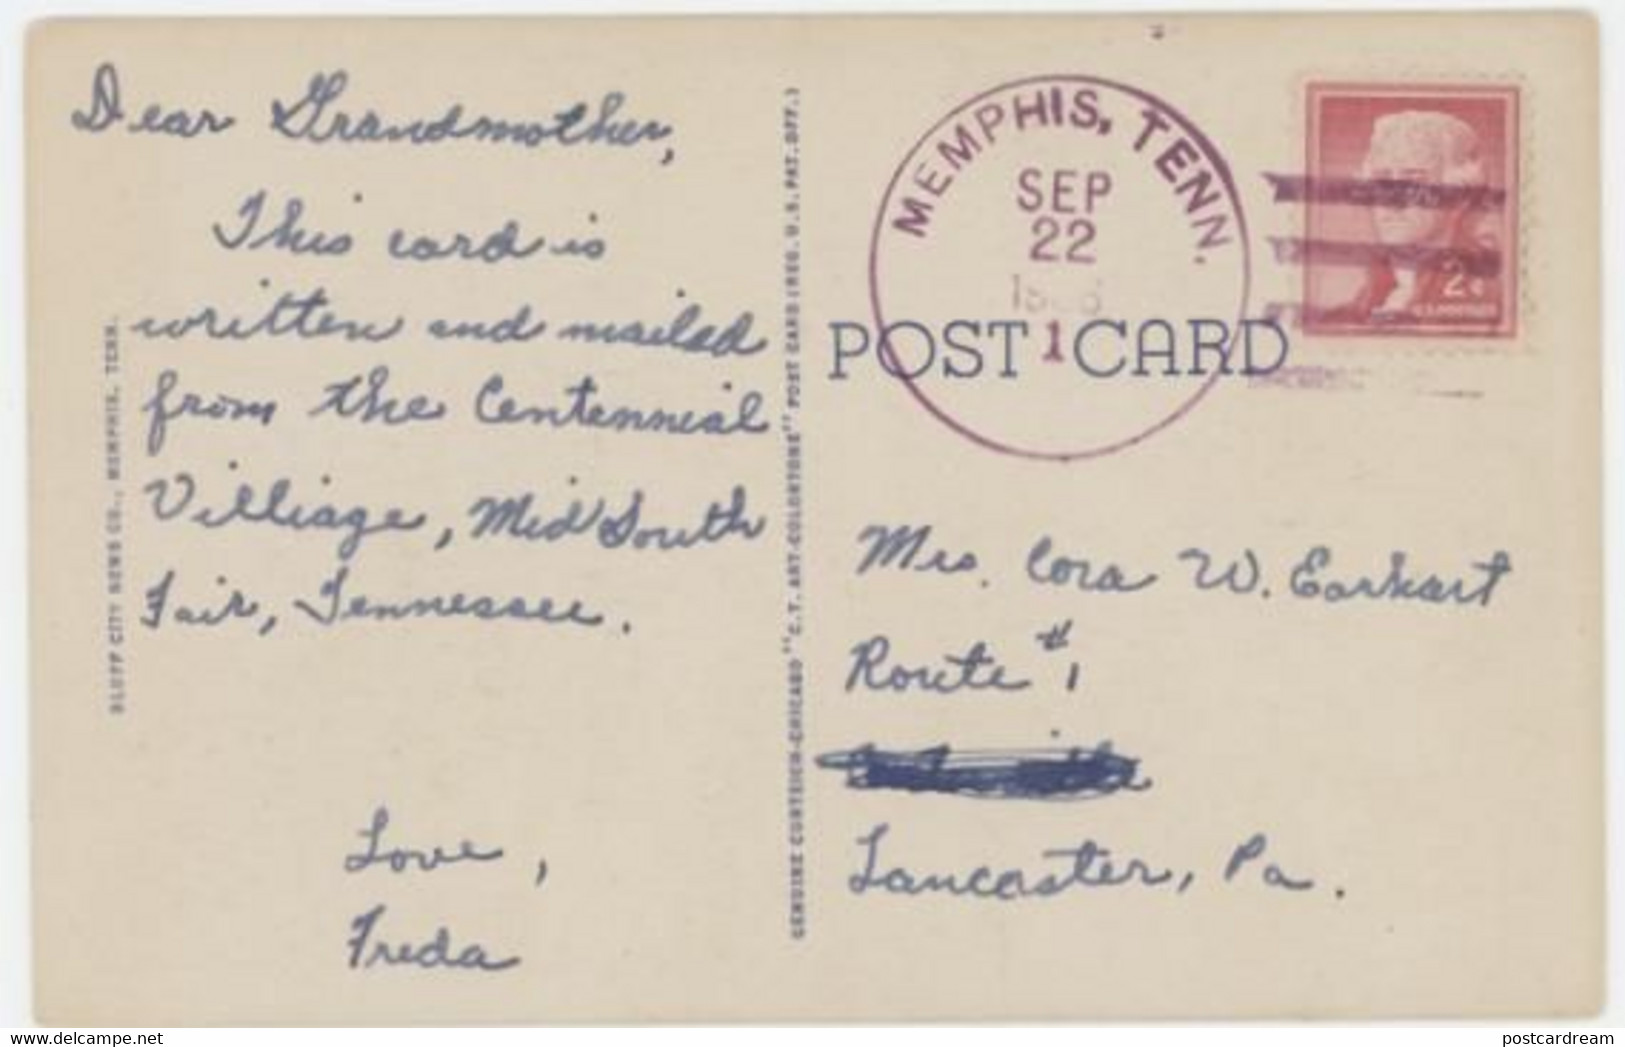 Dear Grandmother,
This card is
written and mailed
from the Centennial
Villiage, Mid South
Fair, Tennessee.
Love,
Freda
BLUFF CITY NEWS CO., MEMPHIS, TENN.
GENUINE CURTEICH-CHICAGO "C.T. ART-COLORTONE" POST CARD (REG. U.S. PAT. OFF.)
MEMPHIS, TENN.
SEP
22
1
POST CARD
2¢
Mrs. Cora W. Earhart
Route #1
Lancaster, Pa.
postcardream